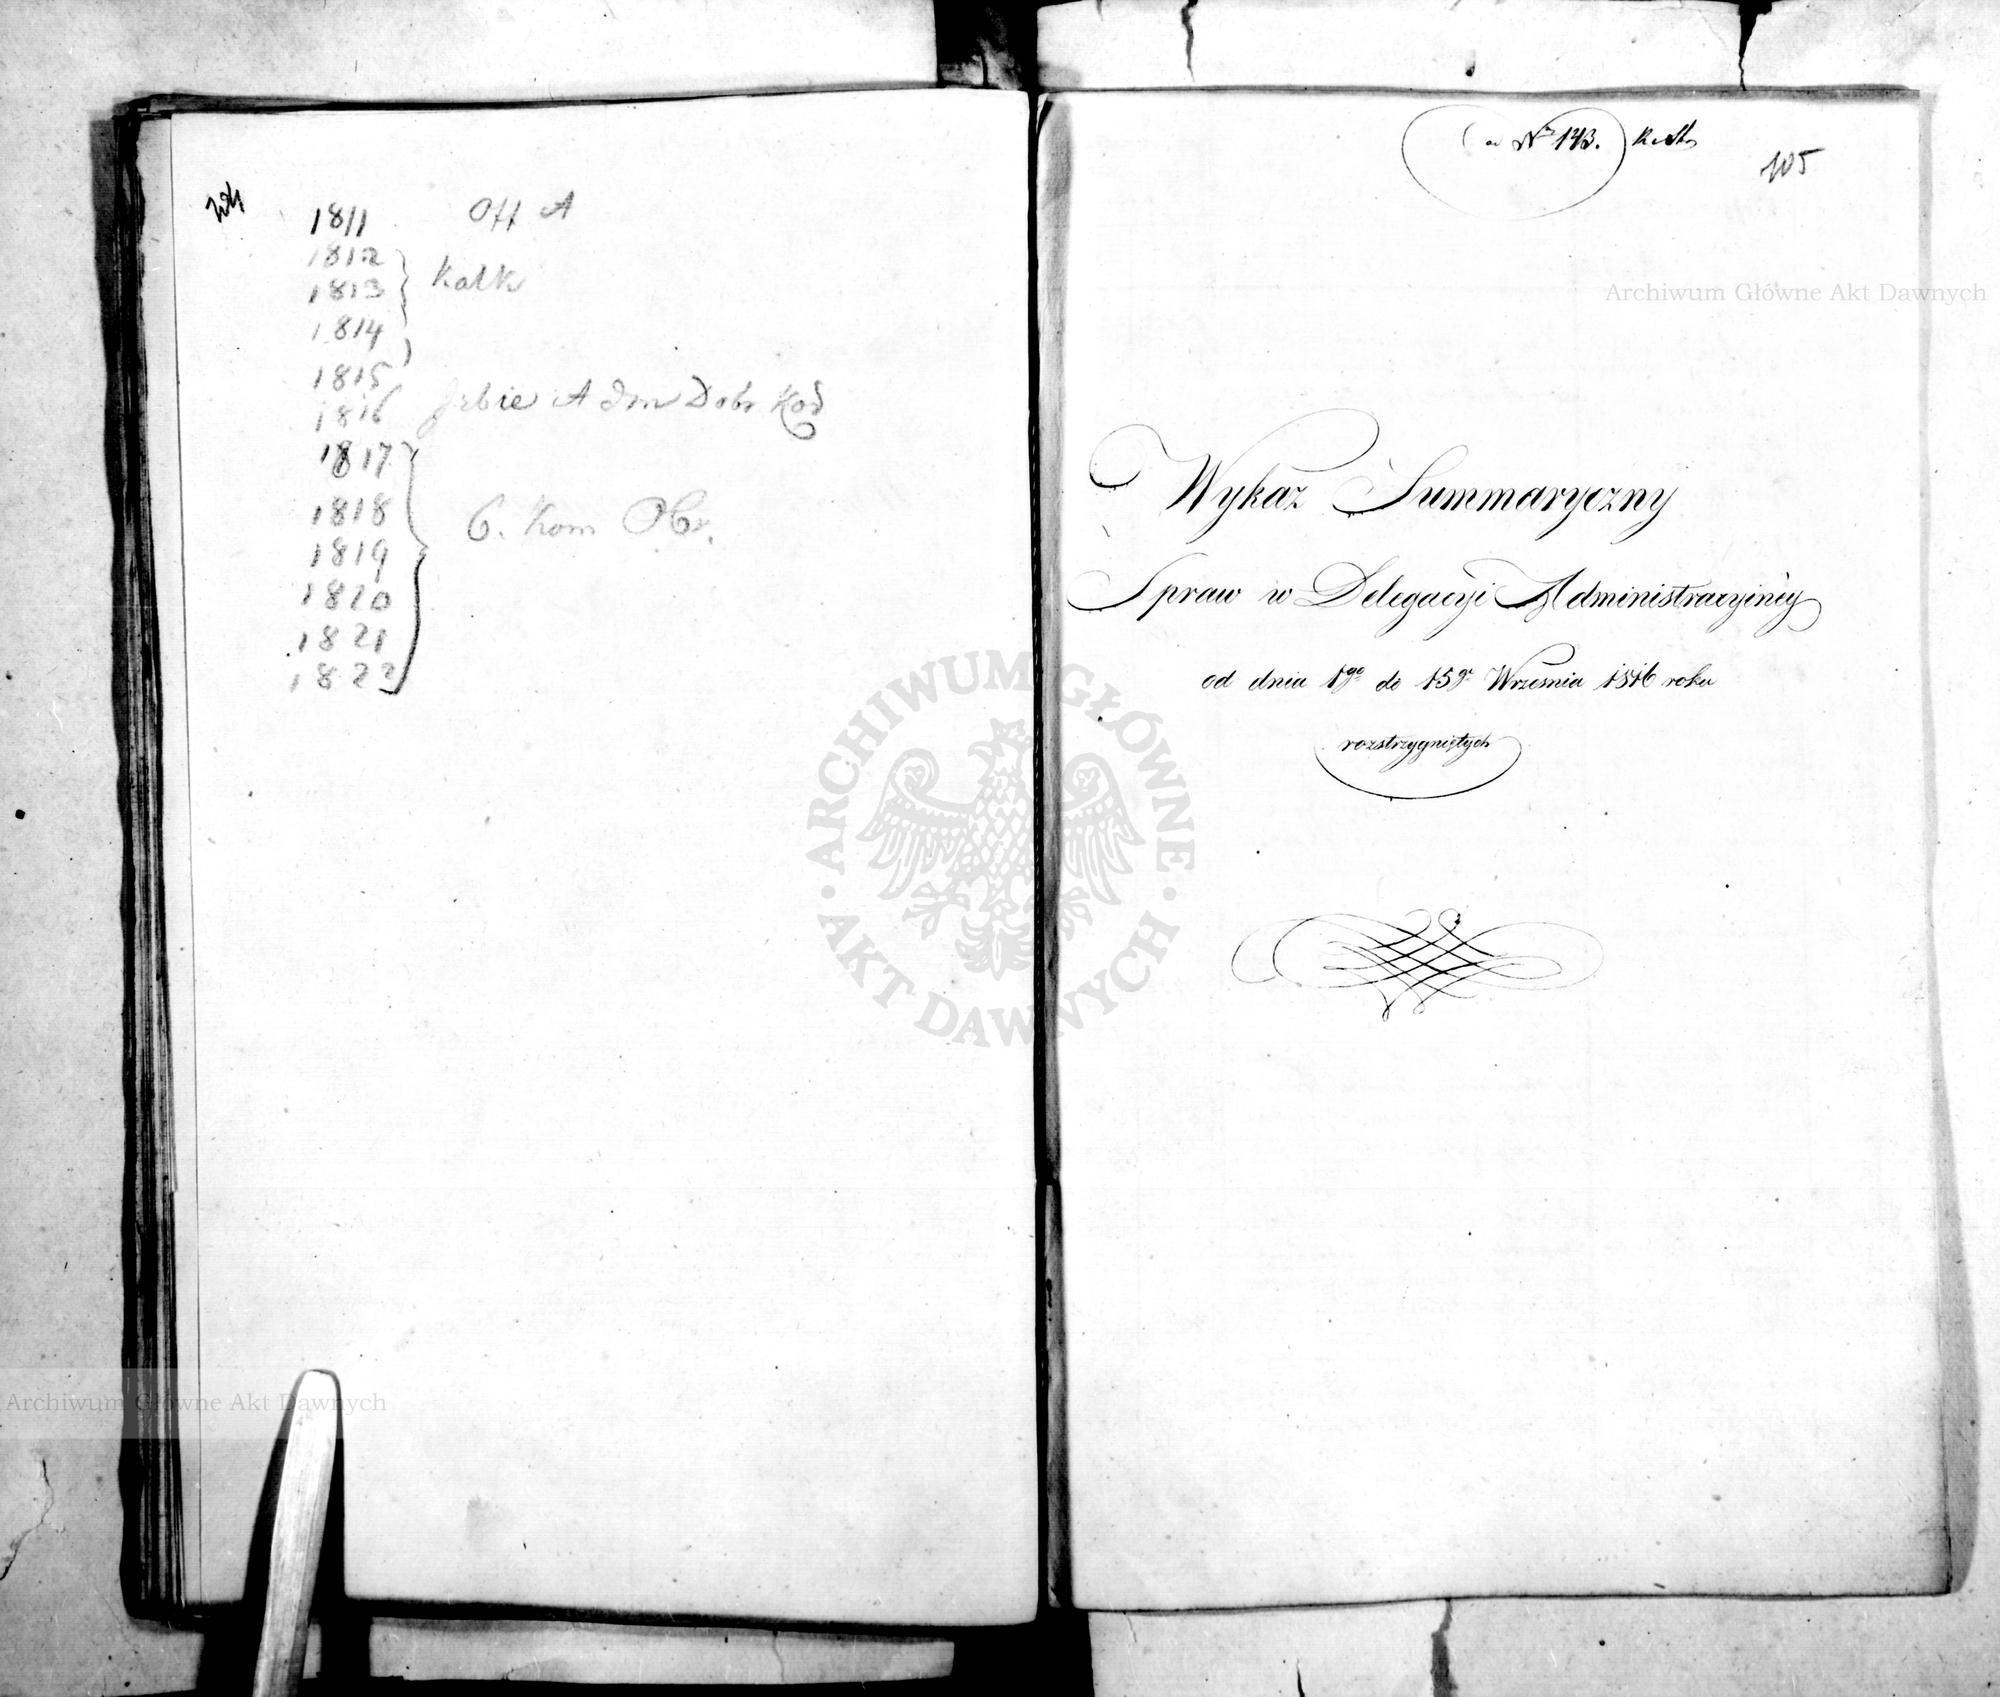 1811 Off A
1812
1813 Kalk
1814
1815
1816 Adm Dobr
1817
1818 Kom
1819
1820
1821
1822
ad Nr 143.
105
Archiwum Główne Akt Dawnych
Wykaz Summaryczny
Spraw w Delegacyi Administracyiney
od dnia 1go do 15go Września 1816 roku
rozstrzygniętych
ARCHIWUM GŁÓWNE AKT DAWNYCH
Archiwum Główne Akt Dawnych